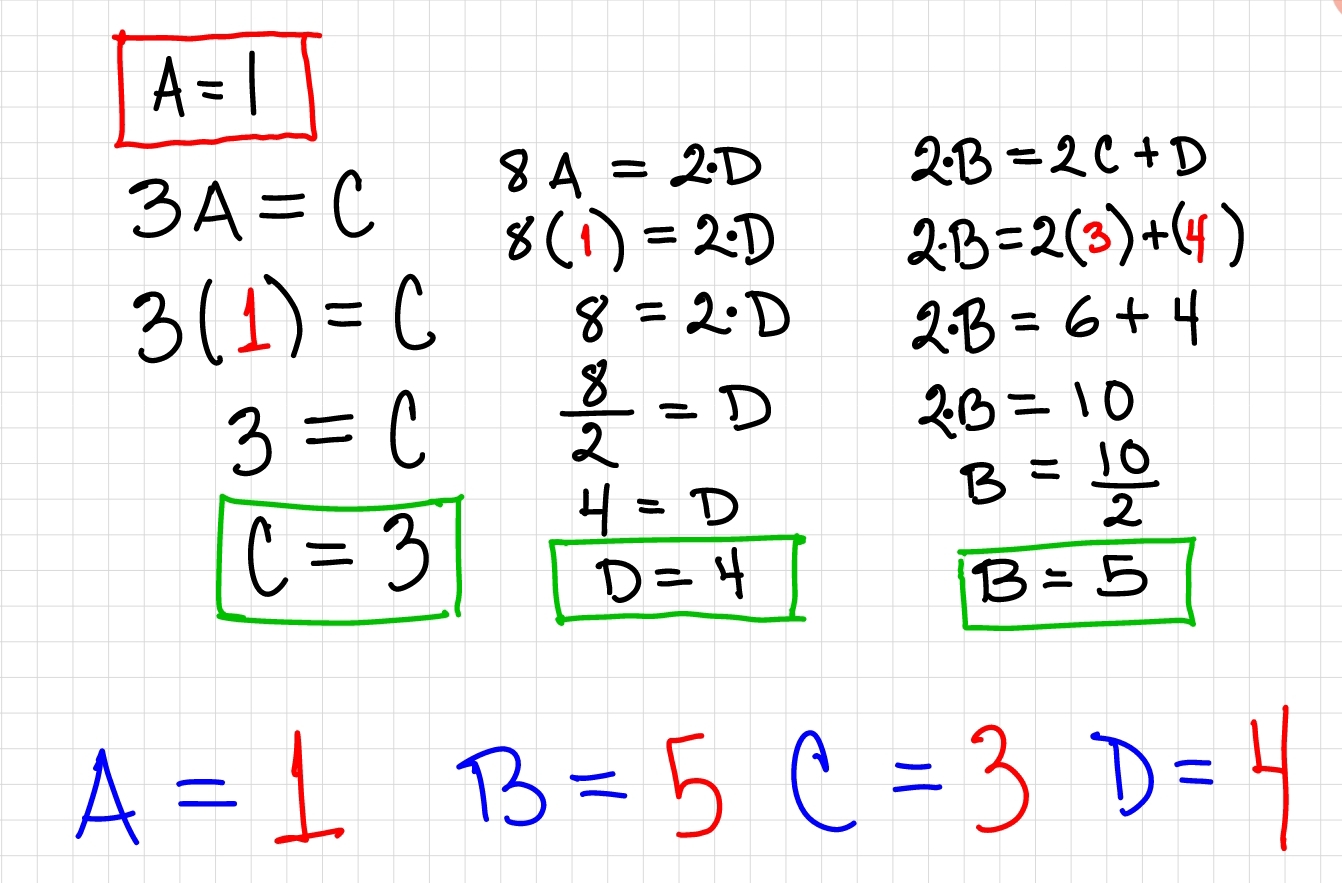 A = 1
3A = C
3(1) = C
3 = C
C = 3
8A = 2·D
8(1) = 2·D
8 = 2·D
8/2 = D
4 = D
D = 4
2·B = 2C + D
2·B = 2(3) + (4)
2·B = 6 + 4
2·B = 10
B = 10/2
B = 5
A = 1 B = 5 C = 3 D = 4